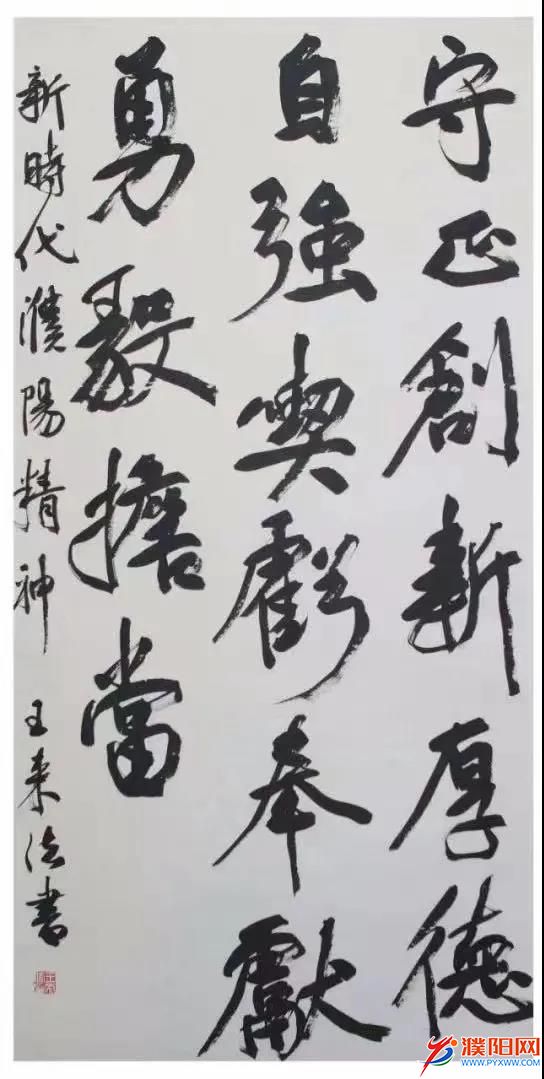 守正創新厚德
自強喫虧奉獻
勇毅擔當
新時代濮陽精神 王来法書
濮阳网
WWW.PYXWW.COM